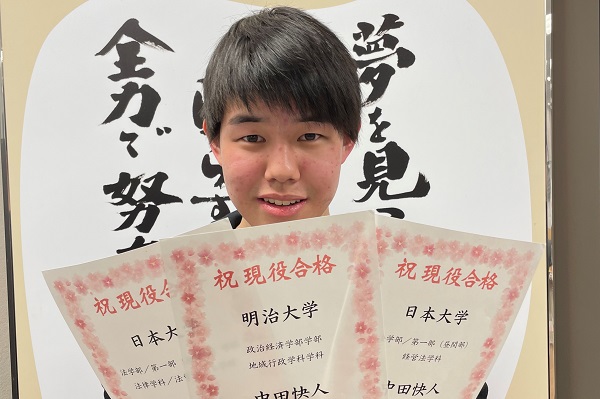 夢を見
全力で努
祝 現役合
日本大
法学部／第一部
法律学科／法
祝 現役合格
明治大学
政治経済学部学部
地域行政学科学科
中田快人
祝 現役合格
日本大学
学部／第一部（昼間部）
経営法学科
中田快人